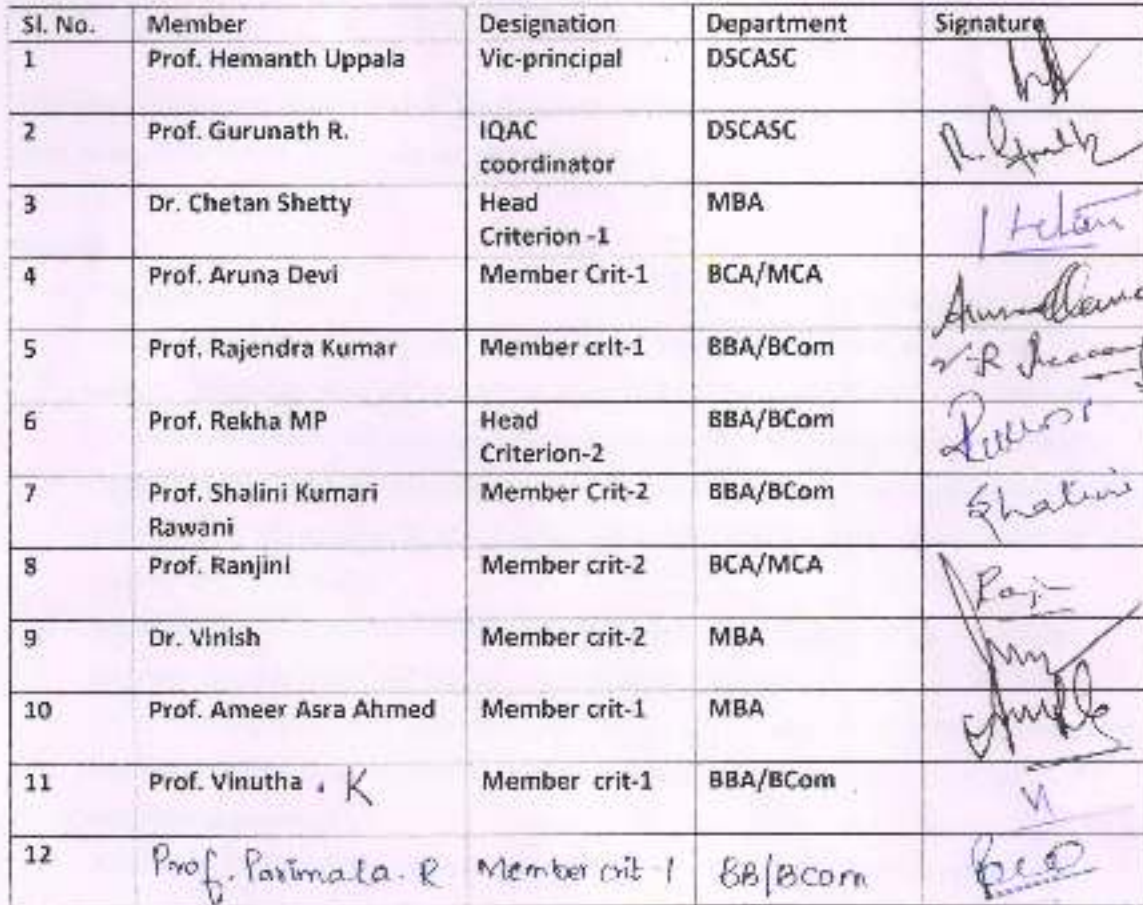 Sl. No. Member Designation Department Signature
1 Prof. Hemanth Uppala Vic-principal DSCASC
2 Prof. Gurunath R. IQAC DSCASC
coordinator
3 Dr. Chetan Shetty Head MBA
Criterion -1
4 Prof. Aruna Devi Member Crit-1 BCA/MCA
5 Prof. Rajendra Kumar Member crit-1 BBA/BCom
6 Prof. Rekha MP Head BBA/BCom
Criterion-2
7 Prof. Shalini Kumari Member Crit-2 BBA/BCom Shalini
Rawani
8 Prof. Ranjini Member crit-2 BCA/MCA
9 Dr. Vinish Member crit-2 MBA
10 Prof. Ameer Asra Ahmed Member crit-1 MBA
11 Prof. Vinutha . K Member crit-1 BBA/BCom
12 Prof. Parimala. R Member crit-1 BB/BCom